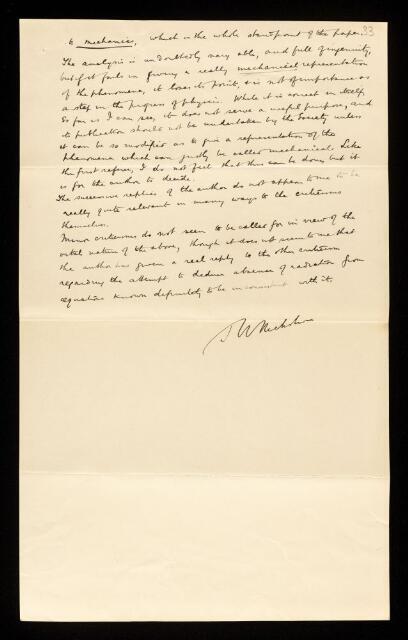 33
to mechanics, which is the whole standpoint of the paper.
The analysis is undoubtedly very able, and full of ingenuity,
but if it fails in giving a really mechanical representation
of the phenomena, it loses its point, & is not of importance as
a step in the progress of physics. While it is correct in itself,
so far as I can see, it does not serve a useful purpose, and
its publication should not be undertaken by the Society unless
it can be so modified as to give a representation of the
phenomena which can justly be called mechanical. Like
the first referee, I do not feel that this can be done, but it
is for the author to decide.
The successive replies of the author do not appear to me to be
really quite relevant in many ways to the criticisms
themselves.
Minor criticisms do not seem to be called for in view of the
nature of the above, though it does not seem to me that
the author has given a real reply to the other criticism
regarding the attempt to deduce absence of radiation from
equations known definitely to be inconsistent with it.
J W Nicholson